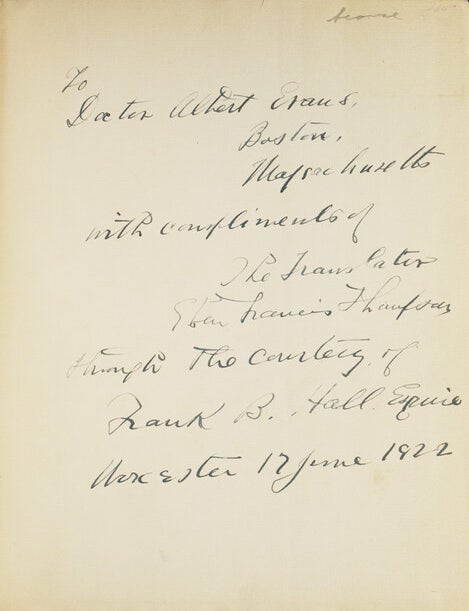 To
Doctor Albert Evans,
Boston,
Massachusetts
with compliments of
The Translator
Eben Francis Thompson
through The Courtesy of
Frank B. Hall Esquire
Worcester 17 June 1922